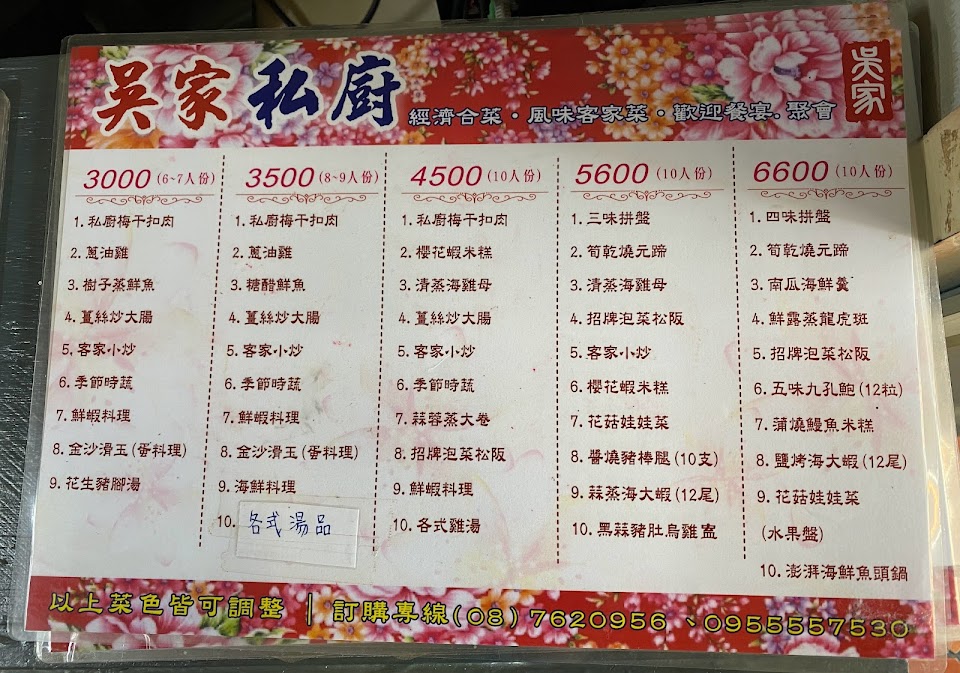 吳家私廚
經濟合菜・風味客家菜・歡迎餐宴.聚會
吳家
3000 (6~7人份)
1. 私廚梅干扣肉
2. 蔥油雞
3. 樹子蒸鮮魚
4. 薑絲炒大腸
5. 客家小炒
6. 季節時蔬
7. 鮮蝦料理
8. 金沙滑玉 (蛋料理)
9. 花生豬腳湯
3500 (8~9人份)
1. 私廚梅干扣肉
2. 蔥油雞
3. 糖醋鮮魚
4. 薑絲炒大腸
5. 客家小炒
6. 季節時蔬
7. 鮮蝦料理
8. 金沙滑玉 (蛋料理)
9. 海鮮料理
10. 各式湯品
4500 (10人份)
1. 私廚梅干扣肉
2. 櫻花蝦米糕
3. 清蒸海雞母
4. 薑絲炒大腸
5. 客家小炒
6. 季節時蔬
7. 蒜蓉蒸大卷
8. 招牌泡菜松阪
9. 鮮蝦料理
10. 各式雞湯
5600 (10人份)
1. 三味拼盤
2. 筍乾燒元蹄
3. 清蒸海雞母
4. 招牌泡菜松阪
5. 客家小炒
6. 櫻花蝦米糕
7. 花菇娃娃菜
8. 醬燒豬棒腿 (10支)
9. 蒜蒸海大蝦 (12尾)
10. 黑蒜豬肚烏雞盅
6600 (10人份)
1. 四味拼盤
2. 筍乾燒元蹄
3. 南瓜海鮮羹
4. 鮮露蒸龍虎斑
5. 招牌泡菜松阪
6. 五味九孔鮑 (12粒)
7. 蒲燒鰻魚米糕
8. 鹽烤海大蝦 (12尾)
9. 花菇娃娃菜
(水果盤)
10. 澎湃海鮮魚頭鍋
以上菜色皆可調整 | 訂購專線(08) 7620956 、0955557530